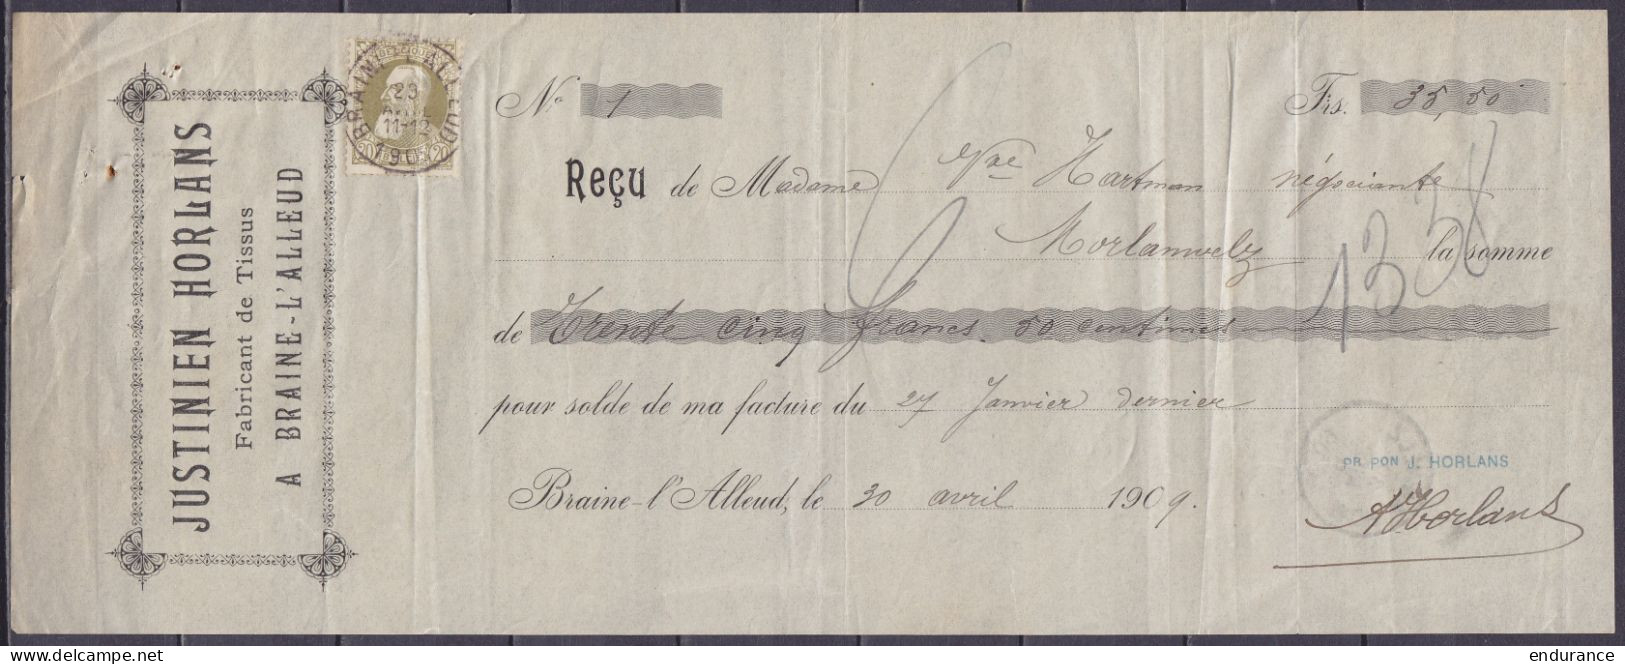 JUSTINIEN HORLANS
Fabricant de Tissus
A BRAINE-L'ALLEUD
BELGIQUE
BRAINE-L'ALLEUD
11-12
20
No 1
Frs. 35,50
Reçu de Madame Vve Hartman négociante
Morlanwelz la somme
de Trente cinq francs 50 centimes
pour solde de ma facture du 27 Janvier dernier
Braine-l'Alleud, le 30 avril 1909.
PR PON J. HORLANS
AHorlans
1338
delcampe.net
endurance